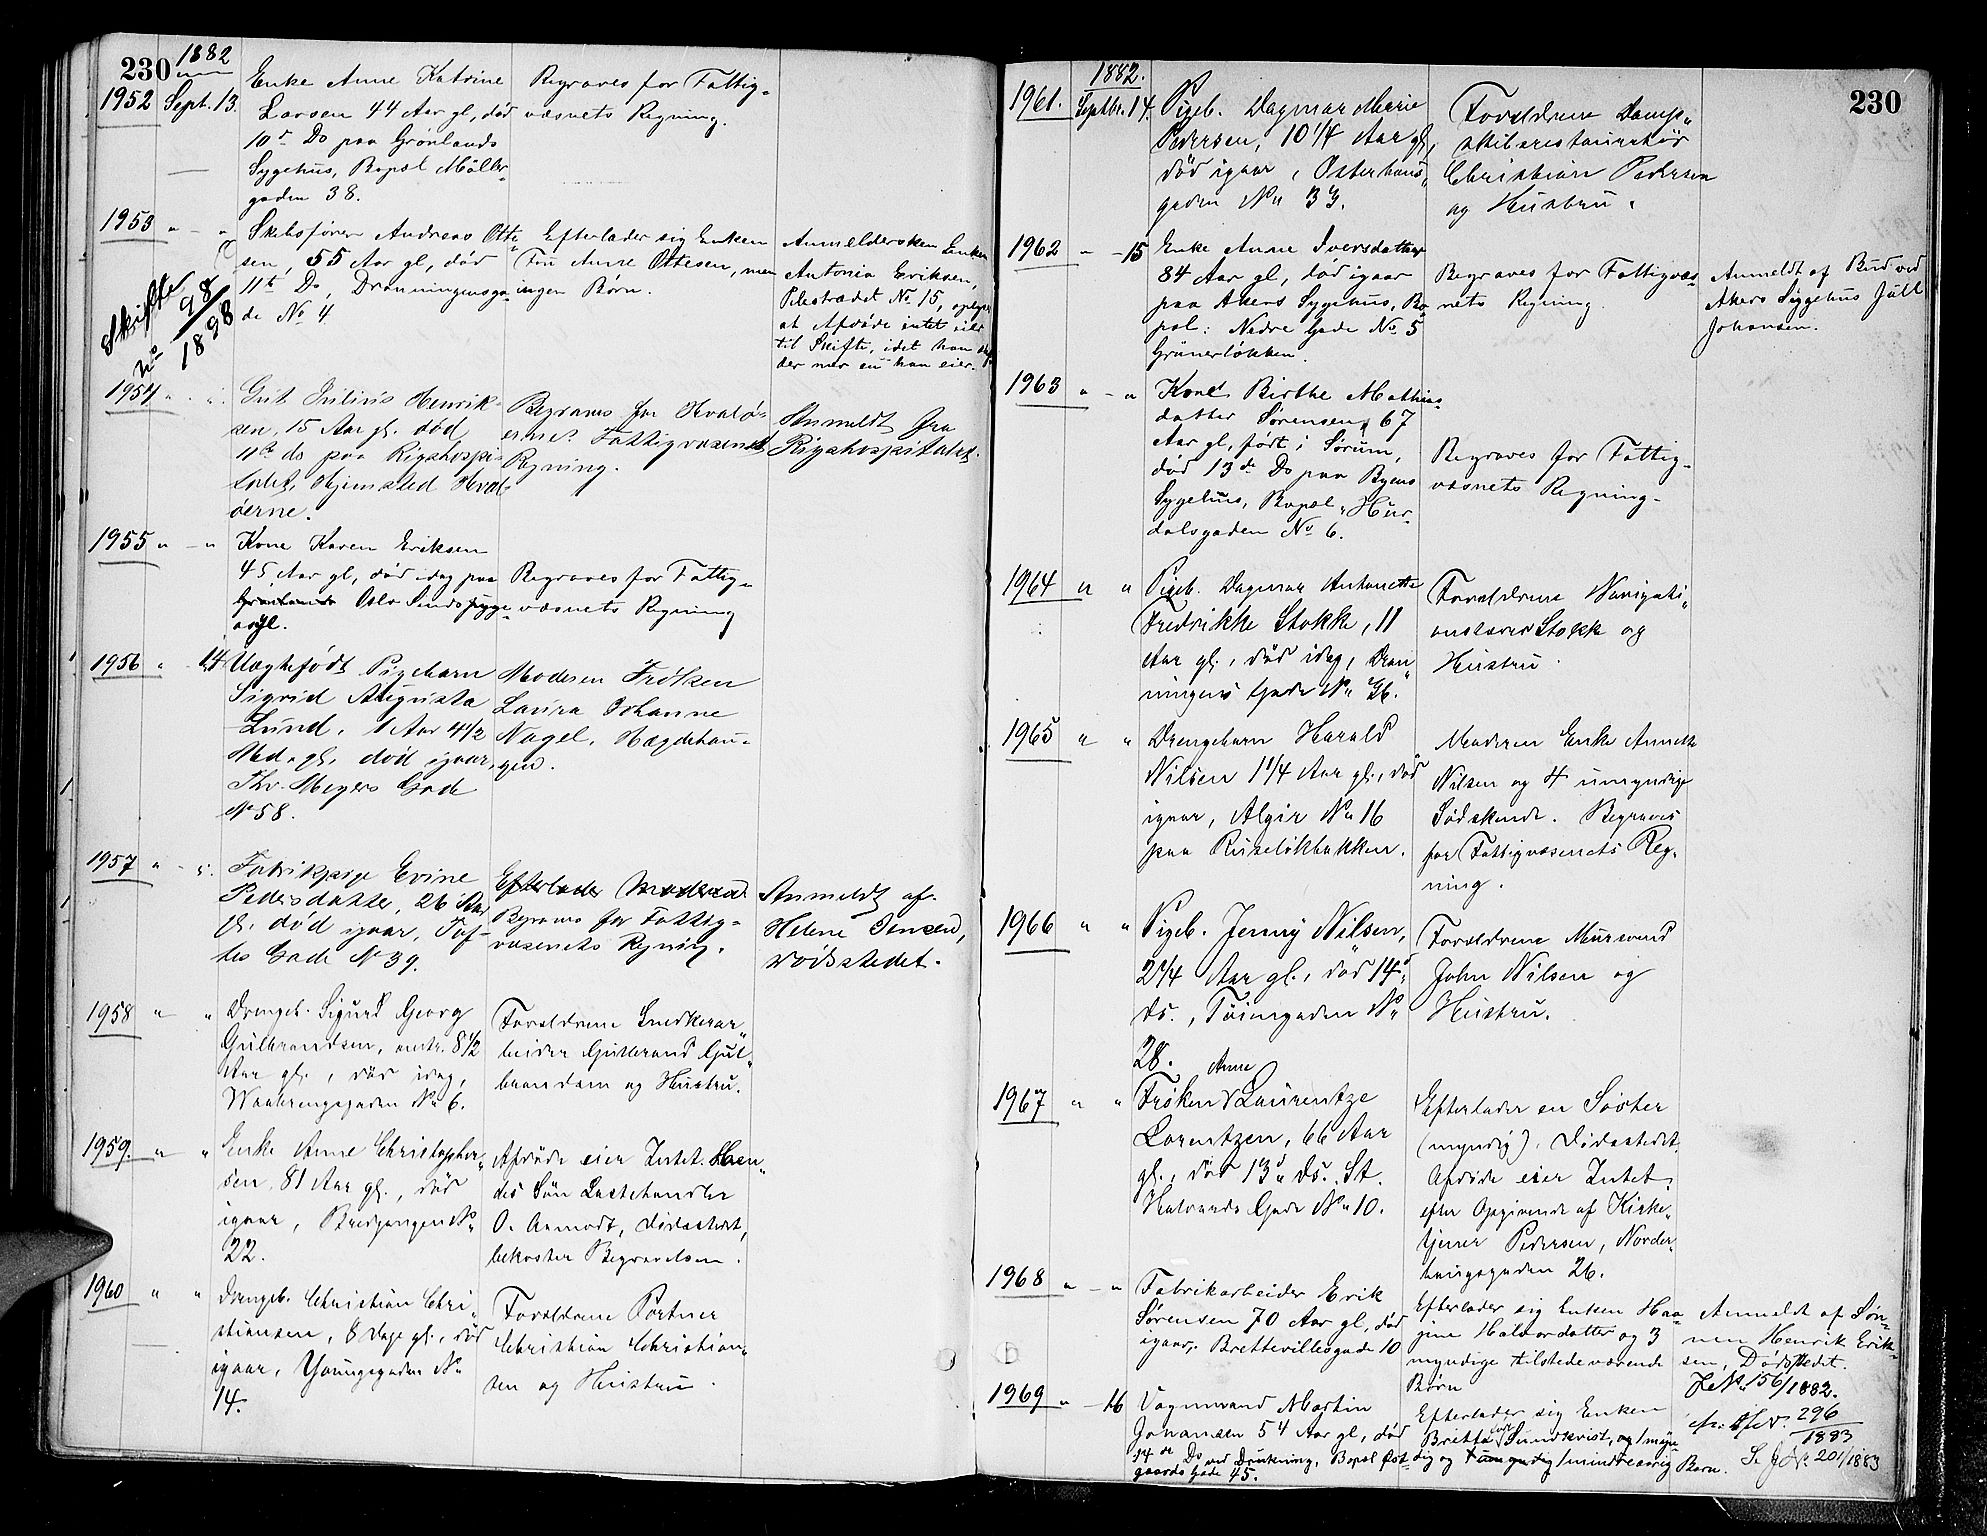 230
1882
1952 Sept. 13.
Enke Anne Katrine
Larsen 44 Aar gl, død
10de Ds paa Grønlands
Sygehus, Bopæl Møller-
gaden 38.
Begraves for Fattig-
væsnets Regning.
1953 " - "
Skibsfører Andreas Otte-
sen, 55 Aar gl, død
11te Ds, Dronningensga-
de No 4.
Efterlader sig Enken
Fru Anne Ottesen, men
ingen Børn.
Anmeldersken Enken
Antonia Eriksen,
Pilestrædet No 15, opgiver
at Afdøde intet eier
til Skifte, idet han skyl-
der mer en han eier.
Skifte
No 98/1898
1954 " - "
Gut Julius Henrik-
sen, 15 Aar gl. død
11te ds paa Rigshospi-
talet, Hjemsted Hval-
øerne.
Begraves for Hvalø-
ernes Fattigvæsenets
Regning.
Anmeldt fra
Rigshospitalet.
1955 " - "
Kone Karen Eriksen
45 Aar gl, død idag paa
Grønlands Oslo Sindssyge
asyl.
Begraves for Fattig-
væsnets Regning
1956 " - 14
Uægtefødt Pigebarn
Sigrid Augusta
Lund, 1 Aar 4 1/2
Md. gl. død igaar,
Thv. Meyers Gade
No 58.
Moderen Frøken
Laura Johanne
Nagel, Hægdehau-
gen.
1957 " - "
Fabrikpige Evine
Pedersdatter, 26 Aar
gl. død igaar, Tof-
tes Gade No 39.
Efterlader Moderen
Begraves for Fattig-
væsenets Regning.
Anmeldt af
Helene Jensen,
Dødsstedet.
1958 " "
Drengeb. Sigurd Georg
Gulbrandsen, omtr. 8 1/2
Aar gl., død idag,
Waalerengegaden No 6.
Forældrene Snedkerar-
beider Gulbrand Gul-
brandsen og Hustru.
1959. " "
Enke Anne Christopher-
sen, 81 Aar gl., død
igaar, Bredgangen No
22.
Afdøde eier Intet. Hen-
des Søn Lastehandler
O. Aamodt, Dødsstedet,
bekoster Begravelsen.
1960 " "
Drengeb. Christian Chri-
stiansen, 8 Dage gl., død
igaar, Youngsgaden No
14.
Forældrene Portner
Christian Christian-
sen og Hustru.
230
1882.
1961. Septbr. 14.
Pigeb. Dagmar Marie
Pedersen, 10 1/4 Aar gl,
død igaar, Osterhaus-
gaden No 33.
Forældrene Damp-
skibsrestauratør
Christian Pedersen
og Hustru.
1962 " - 15
Enke Anne Iversdatter
84 Aar gl, død igaar
paa Akers Sygehus, Bo-
pæl: Nedre Gade No 5
Grünerløkken.
Begraves for Fattigvæs-
nets Regning
Anmeldt af Bud ved
Akers Sygehus Jull
Johansen.
1963 " - "
Kone Birthe Mathias-
datter Sørensen, 67
Aar gl, født i Sørum,
død 13de Ds paa Byens
Sygehus, Bopæl Hur-
dalsgaden No 6.
Begraves for Fattig-
væsnets Regning.
1964 " "
Pigeb. Dagmar Antonette
Fredrikke Stokke, 11
Aar gl., død idag, Dron-
ningens Gade No 36.
Forældrene Navigati-
onslærer Stokk og
Hustru.
1965 " "
Drengebarn Harald
Nilsen 1 1/4 Aar gl., død
igaar, Algir No 16
paa Ruseløkbakken.
Moderen Enke Annette
Nilsen og 4 umyndige
Sødskende. Begraves
for Fattigvæsenets Reg-
ning.
1966 " "
Pigeb. Jenny Nilsen,
2 1/4 Aar gl., død 14de
ds., Tøiengaden No
28.
Forældrene Mursvend
John Nilsen og
Hustru.
1967 " "
Anne
Frøken Laurentze
Lorentzen, 66 Aar
gl., død 13de ds. St.
Halvards Gade No 10.
Efterlader en Søster
(myndig). Dødsstedet.
Afdøde eier Intet,
efter Opgivende af Kirke-
tjener Pedersen, Norder-
haugsgaden 26.
1968 " - "
Fabrikarbeider Erik
Sørensen 70 Aar gl, død
igaar, Brettevillesgade 10
Efterlader sig Enken Haa-
gine Halvordatter og 3
myndige tilstedeværende
Børn
Anmeldt af Søn-
nen Henrik Erik-
sen, Dødsstedet.
1969 " - 16
Vognmand Martin
Johansen 54 Aar gl, død
14de Ds ved Drukning, Bopæl Øst-
gaards Gade 45.
Efterlader sig Enken
Britta Sundkvist, og 1 myn-
dig og 1 umyndig 1 mindreaarig Barn.
No 156/1882.
296/1883
201/1883